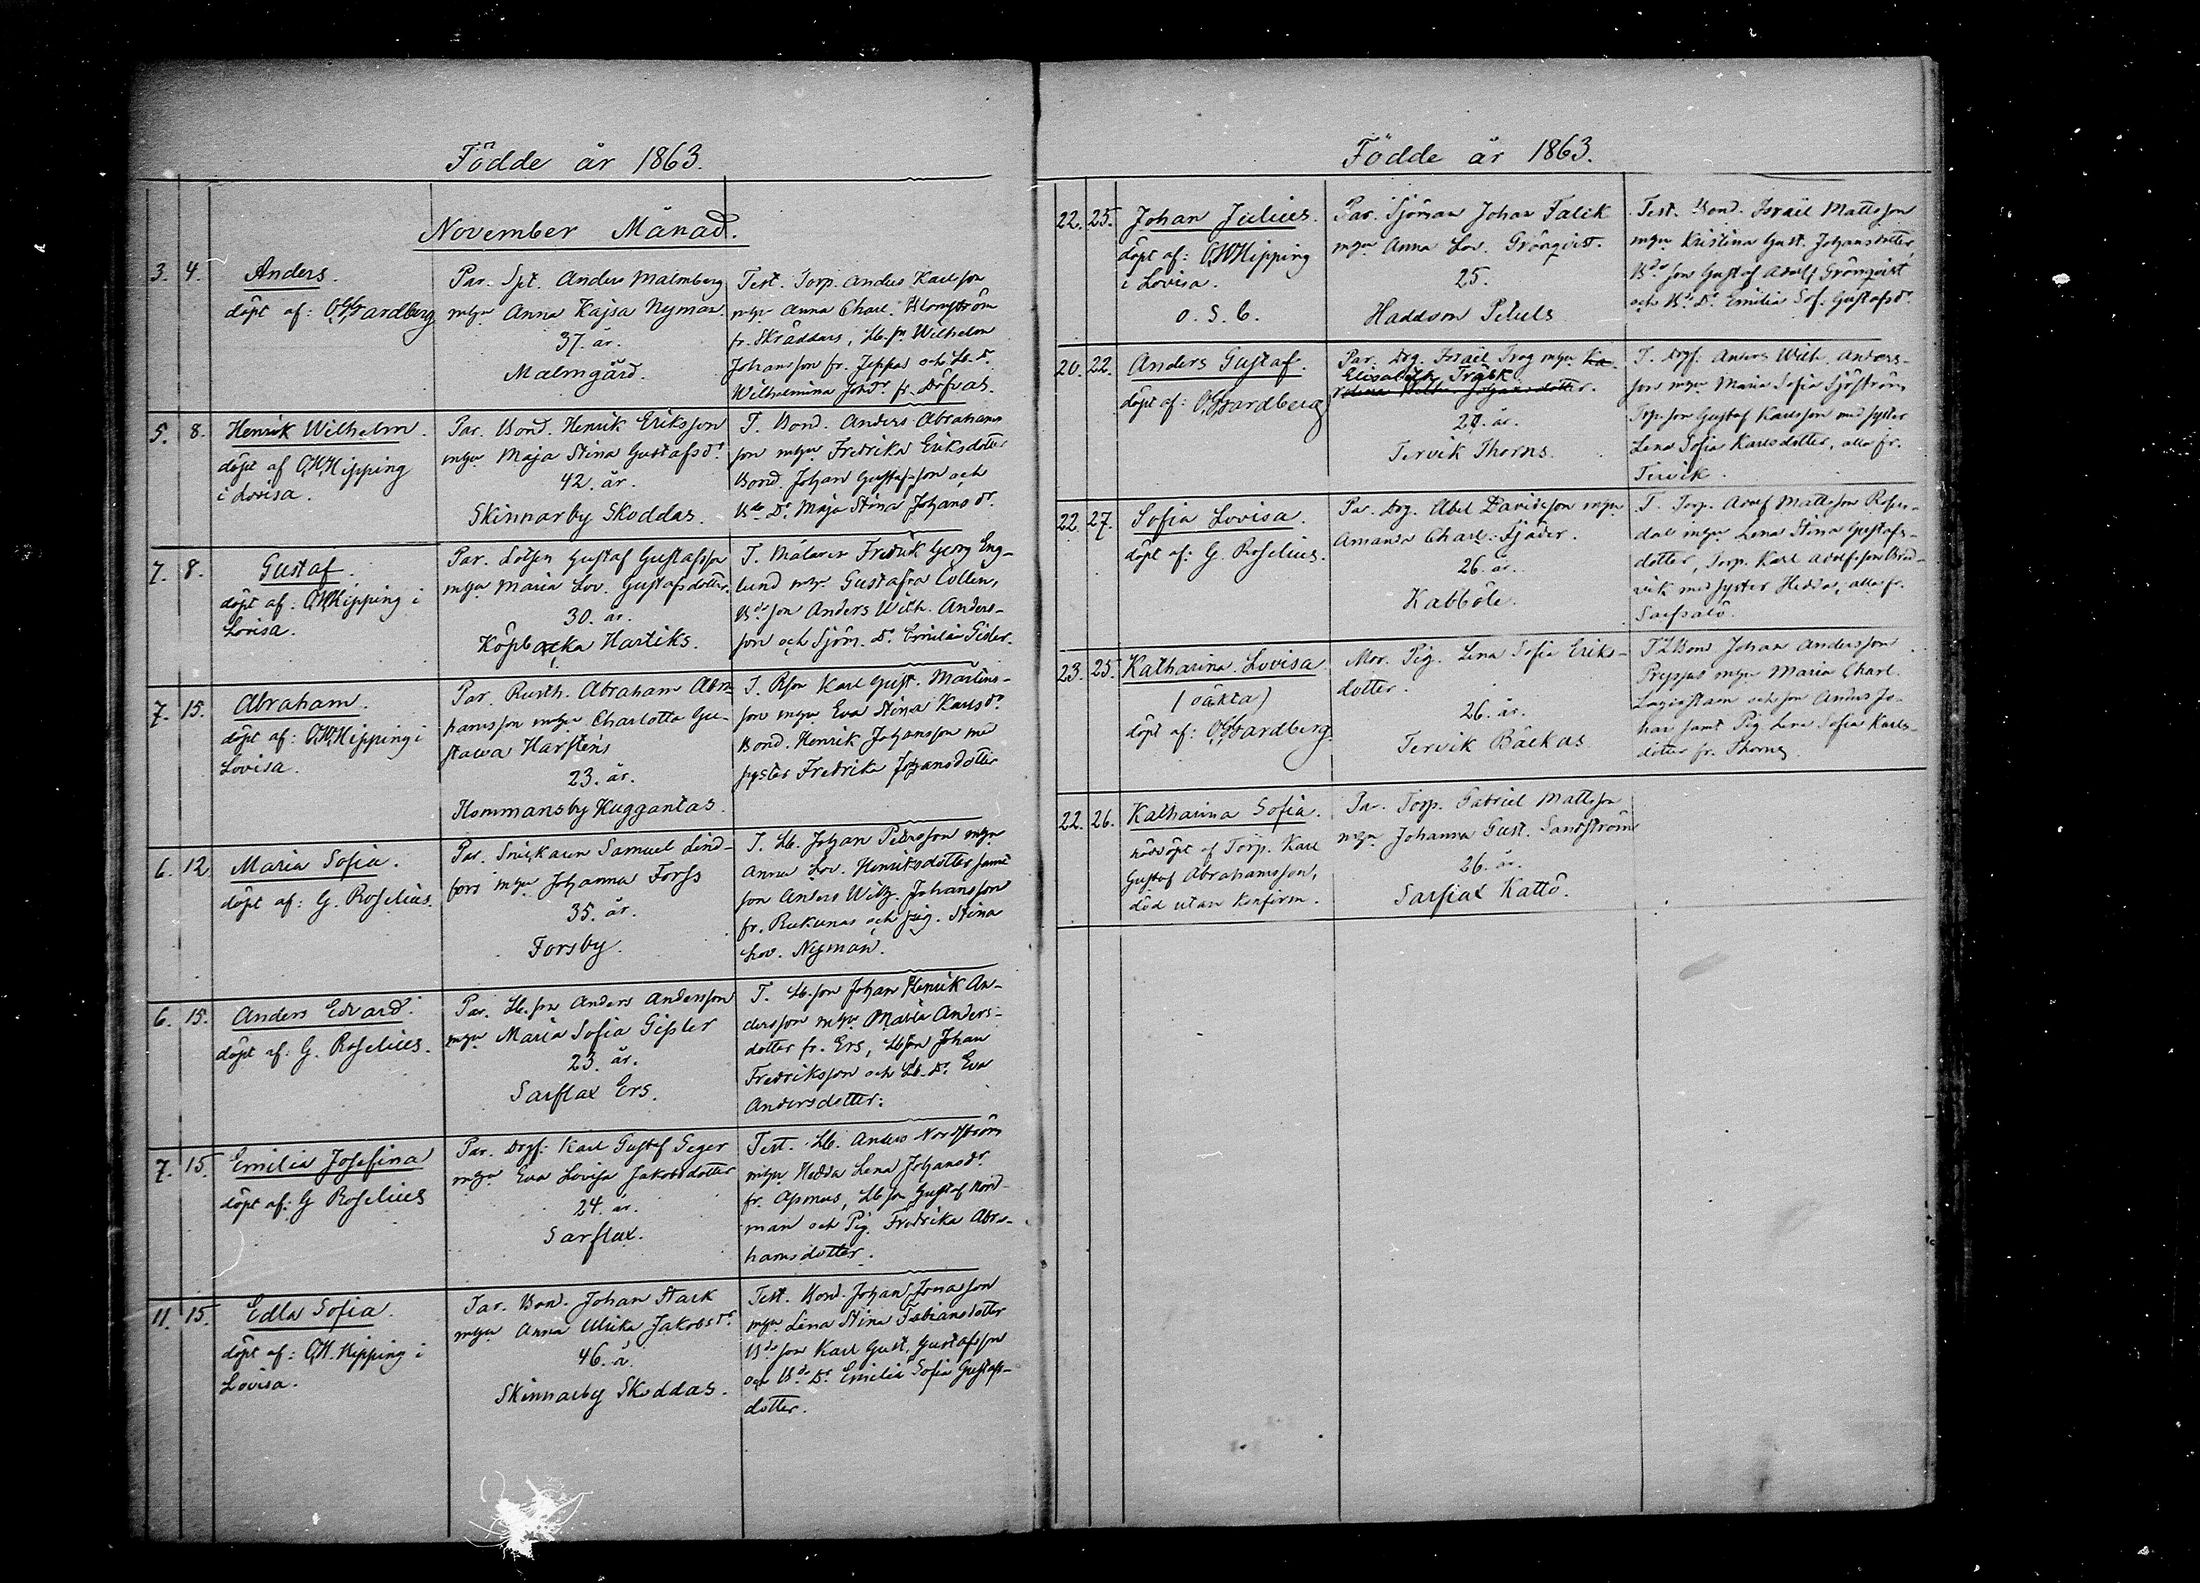 Födde år 1863.
November Månad.
3. 4. Anders.
döpt af: Gardberg
Par. Spt. Anders Malmberg
mgn Anna Kajsa Nyman.
37. år.
Malmgård.
Test. Torp. Anders Karlsson
mgn Anna Charl. Blomström
fr. Skräddars, Lb. sn Wilhelm
Johansson fr. Jeppas och Lb. Dr.
Wilhelmina Johdr fr. Döfvas.
5. 8. Henrik Wilhelm.
döpt af Hipping
i Lovisa.
Par. Bond. Henrik Eriksson
mgn Maja Stina Gustafsdr
42. år.
Skinnarby Skoddas.
T. Bond. Anders Abrahams
son mgn Fredrika Eriksdotter
Bond. Johan Gustafsson och
Bde Dr. Maja Stina Johansdr.
7. 8. Gustaf.
döpt af: Hipping i
Lovisa.
Par. Lotsen Gustaf Gustafsson
mgn Maria Lov. Gustafsdotter.
30. år.
Köpbacka Hartiks.
T. Målaren Fredrik Georg Eng-
lund mgn Gustafva Collen,
Bde son Anders Wilh. Anders-
son och Sjöm. Dr. Emilia Gisler.
7. 15. Abraham.
döpt af: Hipping i
Lovisa.
Par. Rusth. Abraham Abra
hamsson mgn Charlotta Gu-
stawa Harsteńs
23. år.
Hommansby Huggantas.
T. Rson Karl Gust. Martins-
son mgn Eva Stina Karlsdr
Bond. Henrik Johansson med
syster Fredrika Johansdotter
6. 12 Maria Sofia.
döpt af: G. Roselius.
Par. Snickaren Samuel Lind-
fors mgn Johanna Forss
35. år.
Forsby.
T. Lb. Johan Petersson mgn
Anna Lov. Henriksdotter samt
son Anders Wilh. Johansson
fr. Rukunas och pig. Stina
Lov. Nyman.
6. 15. Anders Edvard.
döpt af: G. Roselius.
Par. Lb. son Anders Andersson
mgn Maria Sofia Gisler
23. år.
Sarflax Ers.
T. Lb. son Johan Henrik An-
dersson mgn Maria Anders-
dotter fr. Ers, Lbson Johan
Fredriksson och Lb. Dr. Eva
Andersdotter.
7. 15 Emilia Josefina
döpt af: G Roselius
Par. Drgf. Karl Gustaf Seger
mgn Eva Lovisa Jakobsdotter
24. år.
Sarflax.
Test. Lb. Anders Nordström
mgn Hedda Lena Johansdr
fr. Asmus, Lb son Gustaf Nord-
man och Pig. Fredrika Abra-
hamsdotter.
11. 15. Edla Sofia.
döpt af: Hipping i
Lovisa.
Par. Bond. Johan Stark
mgn Anna Ulrika Jakobsdr
46. å.
Skinnarby Skoddas.
Test. Bond. Johan Jonasson
mgn Lena Stina Fabiansdotter
Bde son Karl Gust. Gustafsson
och Bde Dr. Emilia Sofia Gustafs-
dotter.
Födde år 1863.
22. 25. Johan Julius.
döpt af: Hipping
i Lovisa.
o. S. C.
Par. Sjöman Johan Falck
mgn Anna Lov. Grönqvist.
25.
Haddom Petuls
Test. Bond. Israel Mattsson
mgn Kristina Gust. Johansdotter,
Bde son Gustaf Adolf Grönqvist
och Bde Dr. Emilia Sof. Gustafsdr.
20. 22. Anders Gustaf.
döpt af: Gardberg
Par. Drg. Israel Trog mgn Ka-
Elisabeth Träsk.
Johansdotter.
24. år.
Tervik Thorns.
T. Drgf. Anders Wilh. Anders-
son mgn Maria Sofia Sjöström
Torp son Gustaf Karlsson med syster
Lena Sofia Karlsdotter, alla fr.
Tervik.
22. 27. Sofia Lovisa.
döpt af: G. Roselius.
Par. Drg. Abel Davidsson mgn
Amanda Charl. Fjäder.
26. år.
Kabböle.
T. Torp. Adolf Mattsson Rosen-
dal mgn Lena Stina Gustafs-
dotter, Torp. Karl Adolfsson
vik med syster Hedda, alla fr.
Sarfsalö.
23. 25. Katharina Lovisa
(oäkta)
döpt af: Gardberg.
Mor. Pig. Lena Sofia Eriks-
dotter.
26. år.
Tervik Bäckas
T Bond Johan Andersson
mgn Maria Charl.
och son Anders Jo-
han samt Pig Lena Sofia Karls-
dotter fr. Thorns.
22. 26. Katharina Sofia.
nöddöpt af Torp. Karl
Gustaf Abrahamsson,
död utan konfirm.
Par. Torp. Gabriel Mattsson
mgn Johanna Gust. Sandström
26. år.
Sarflax Kattö.